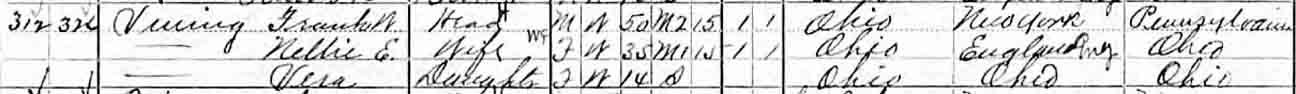 312 324 Vining Frank W. Head M W 50 M2 15 1 1 Ohio New York Pennsylvania
— Nellie E. Wife F W 35 M1 15 1 1 Ohio England Eng Ohio
— Vera Daughter F W 14 S Ohio Ohio Ohio